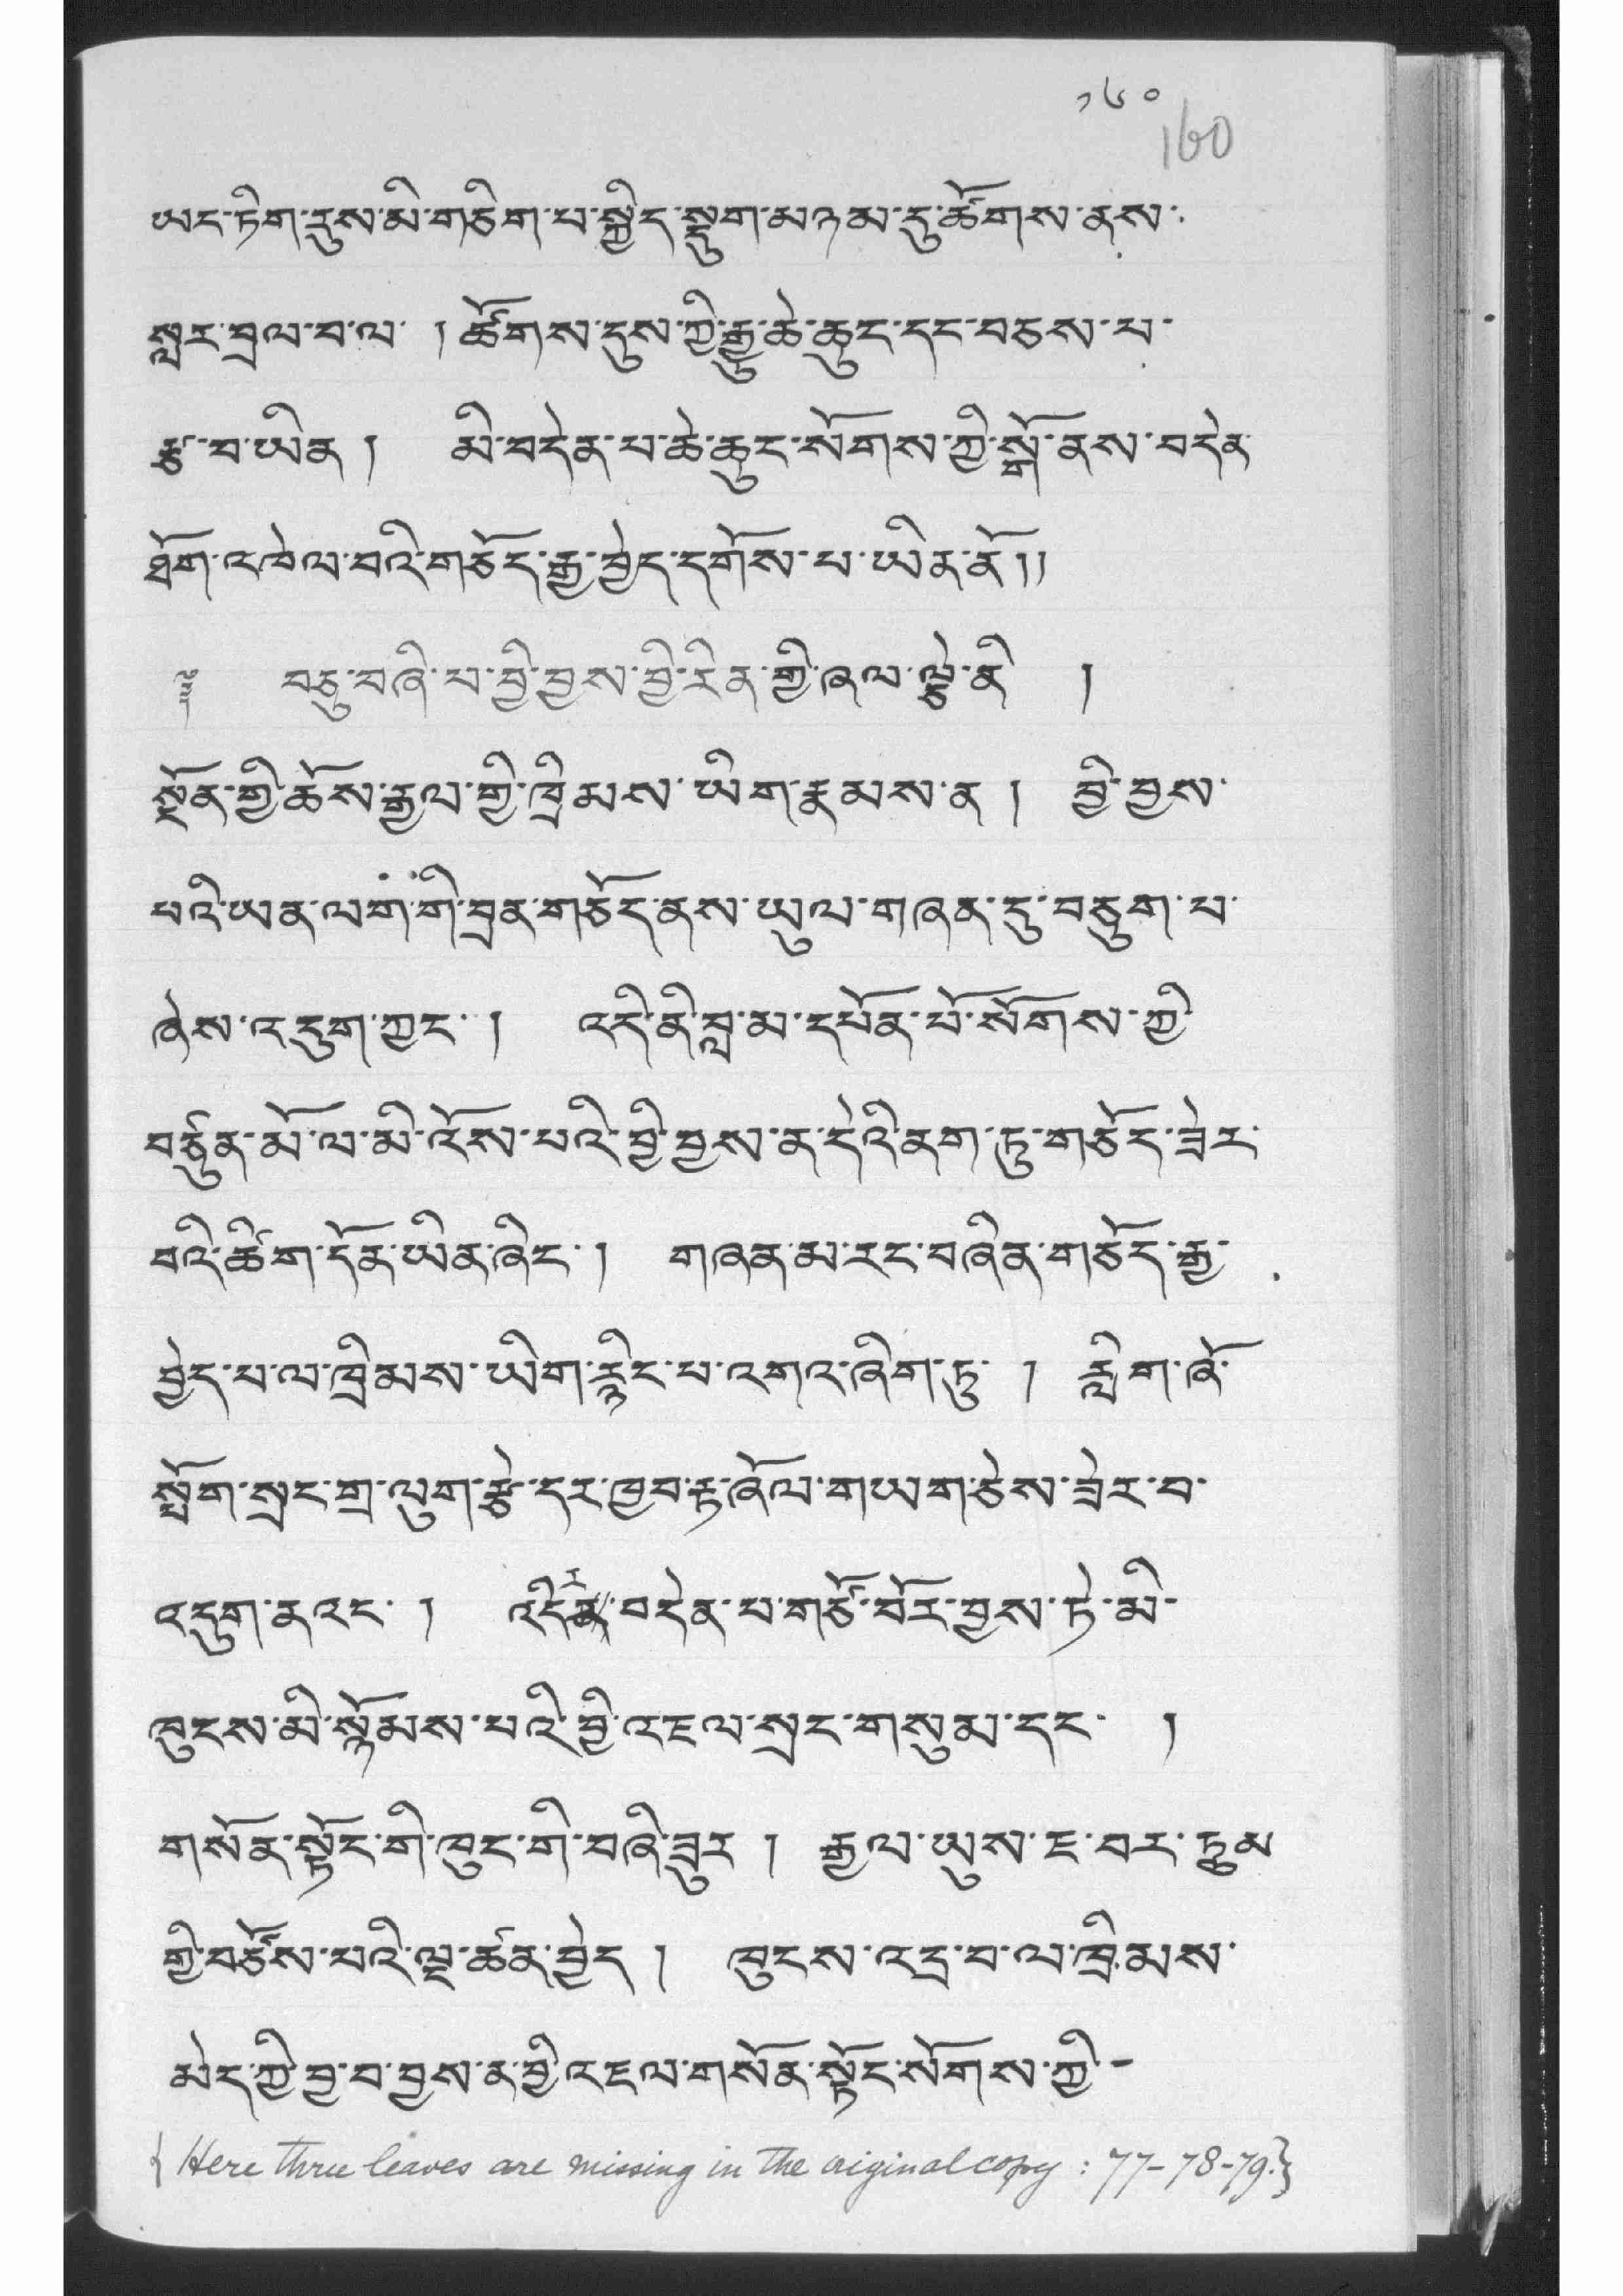 ༡༦༠
160
ཡང་ཏིག་རུས་མི་གཅིག་པ་སྐྱིད་སྡུག་མཉམ་དུ་ཚོགས་ནས་
སླར་བྲལ་བ་ལ་ ། ཚོགས་དུས་ཀྱི་རྒྱུ་ཆེ་ཆུང་དང་བཅས་པ་
རྩ་བ་ཡིན ། མི་བདེན་པ་ཆེ་ཆུང་སོགས་ཀྱི་སྒོ་ནས་བདེན
ཐོག་འཁེལ་བའི་གཅོད་རྒྱ་བྱེད་དགོས་པ་ཡིན་ནོ།།
༈ བཅུ་བཞི་པ་བྱི་བྱས་བྱི་རིན་གྱི་ཞལ་ལྕེ་ནི །
སྔོན་གྱི་ཆོས་རྒྱལ་གྱི་ཁྲིམས་ཡིག་རྣམས་ན ། བྱི་བྱས་
པའི་ཡན་ལག་གི་བྲན་གཅོད་ནས་ཡུལ་གཞན་དུ་བཅུག་པ་
ཞེས་འདུག་ཀྱང་ ། འདི་ནི་བླ་མ་དཔོན་པོ་སོགས་ཀྱི
བཙུན་མོ་ལ་མི་འོས་པའི་བྱི་བྱས་ན་དེའི་ནག་ཏུ་གཅོད་ཟེར་
བའི་ཚིག་དོན་ཡིན་ཞིང་ ། གཞན་མ་རང་བཞིན་གཅོད་རྒྱ་
བྱེད་པ་ལ་ཁྲིམས་ཡིག་རྙིང་པ་འགའ་ཞིག་ཏུ་ ། རླིག་ཞོ་
སློག་སྲང་གྲ་ལུག་རྩེ་དར་ཁྱབ་རྟ་ཞོལ་གཡག་ཅེས་ཟེར་བ་
འདུག་ནའང་ ། འདིར་བདེན་པ་གཙོ་བོར་བྱས་ཏེ་མི་
ཁུངས་མི་སྙོམས་པའི་བྱི་འཇལ་སྲང་གསུམ་དང་ །
གསོན་སྟོང་གི་ཁུང་གི་བཞི་ཟུར ། རྒྱལ་ཡུས་ཇ་བར་ཏྲུམ
གྱི་བཅོས་པའི་ལྔ་ཚན་བྱེད ། ཁུངས་འདྲ་བ་ལ་ཁྲིམས་
མེད་ཀྱི་བྱ་བ་བྱས་ན་བྱི་འཇལ་གསོན་སྟོང་སོགས་ཀྱི་
{ Here three leaves are missing in the original copy : 77-78-79.}